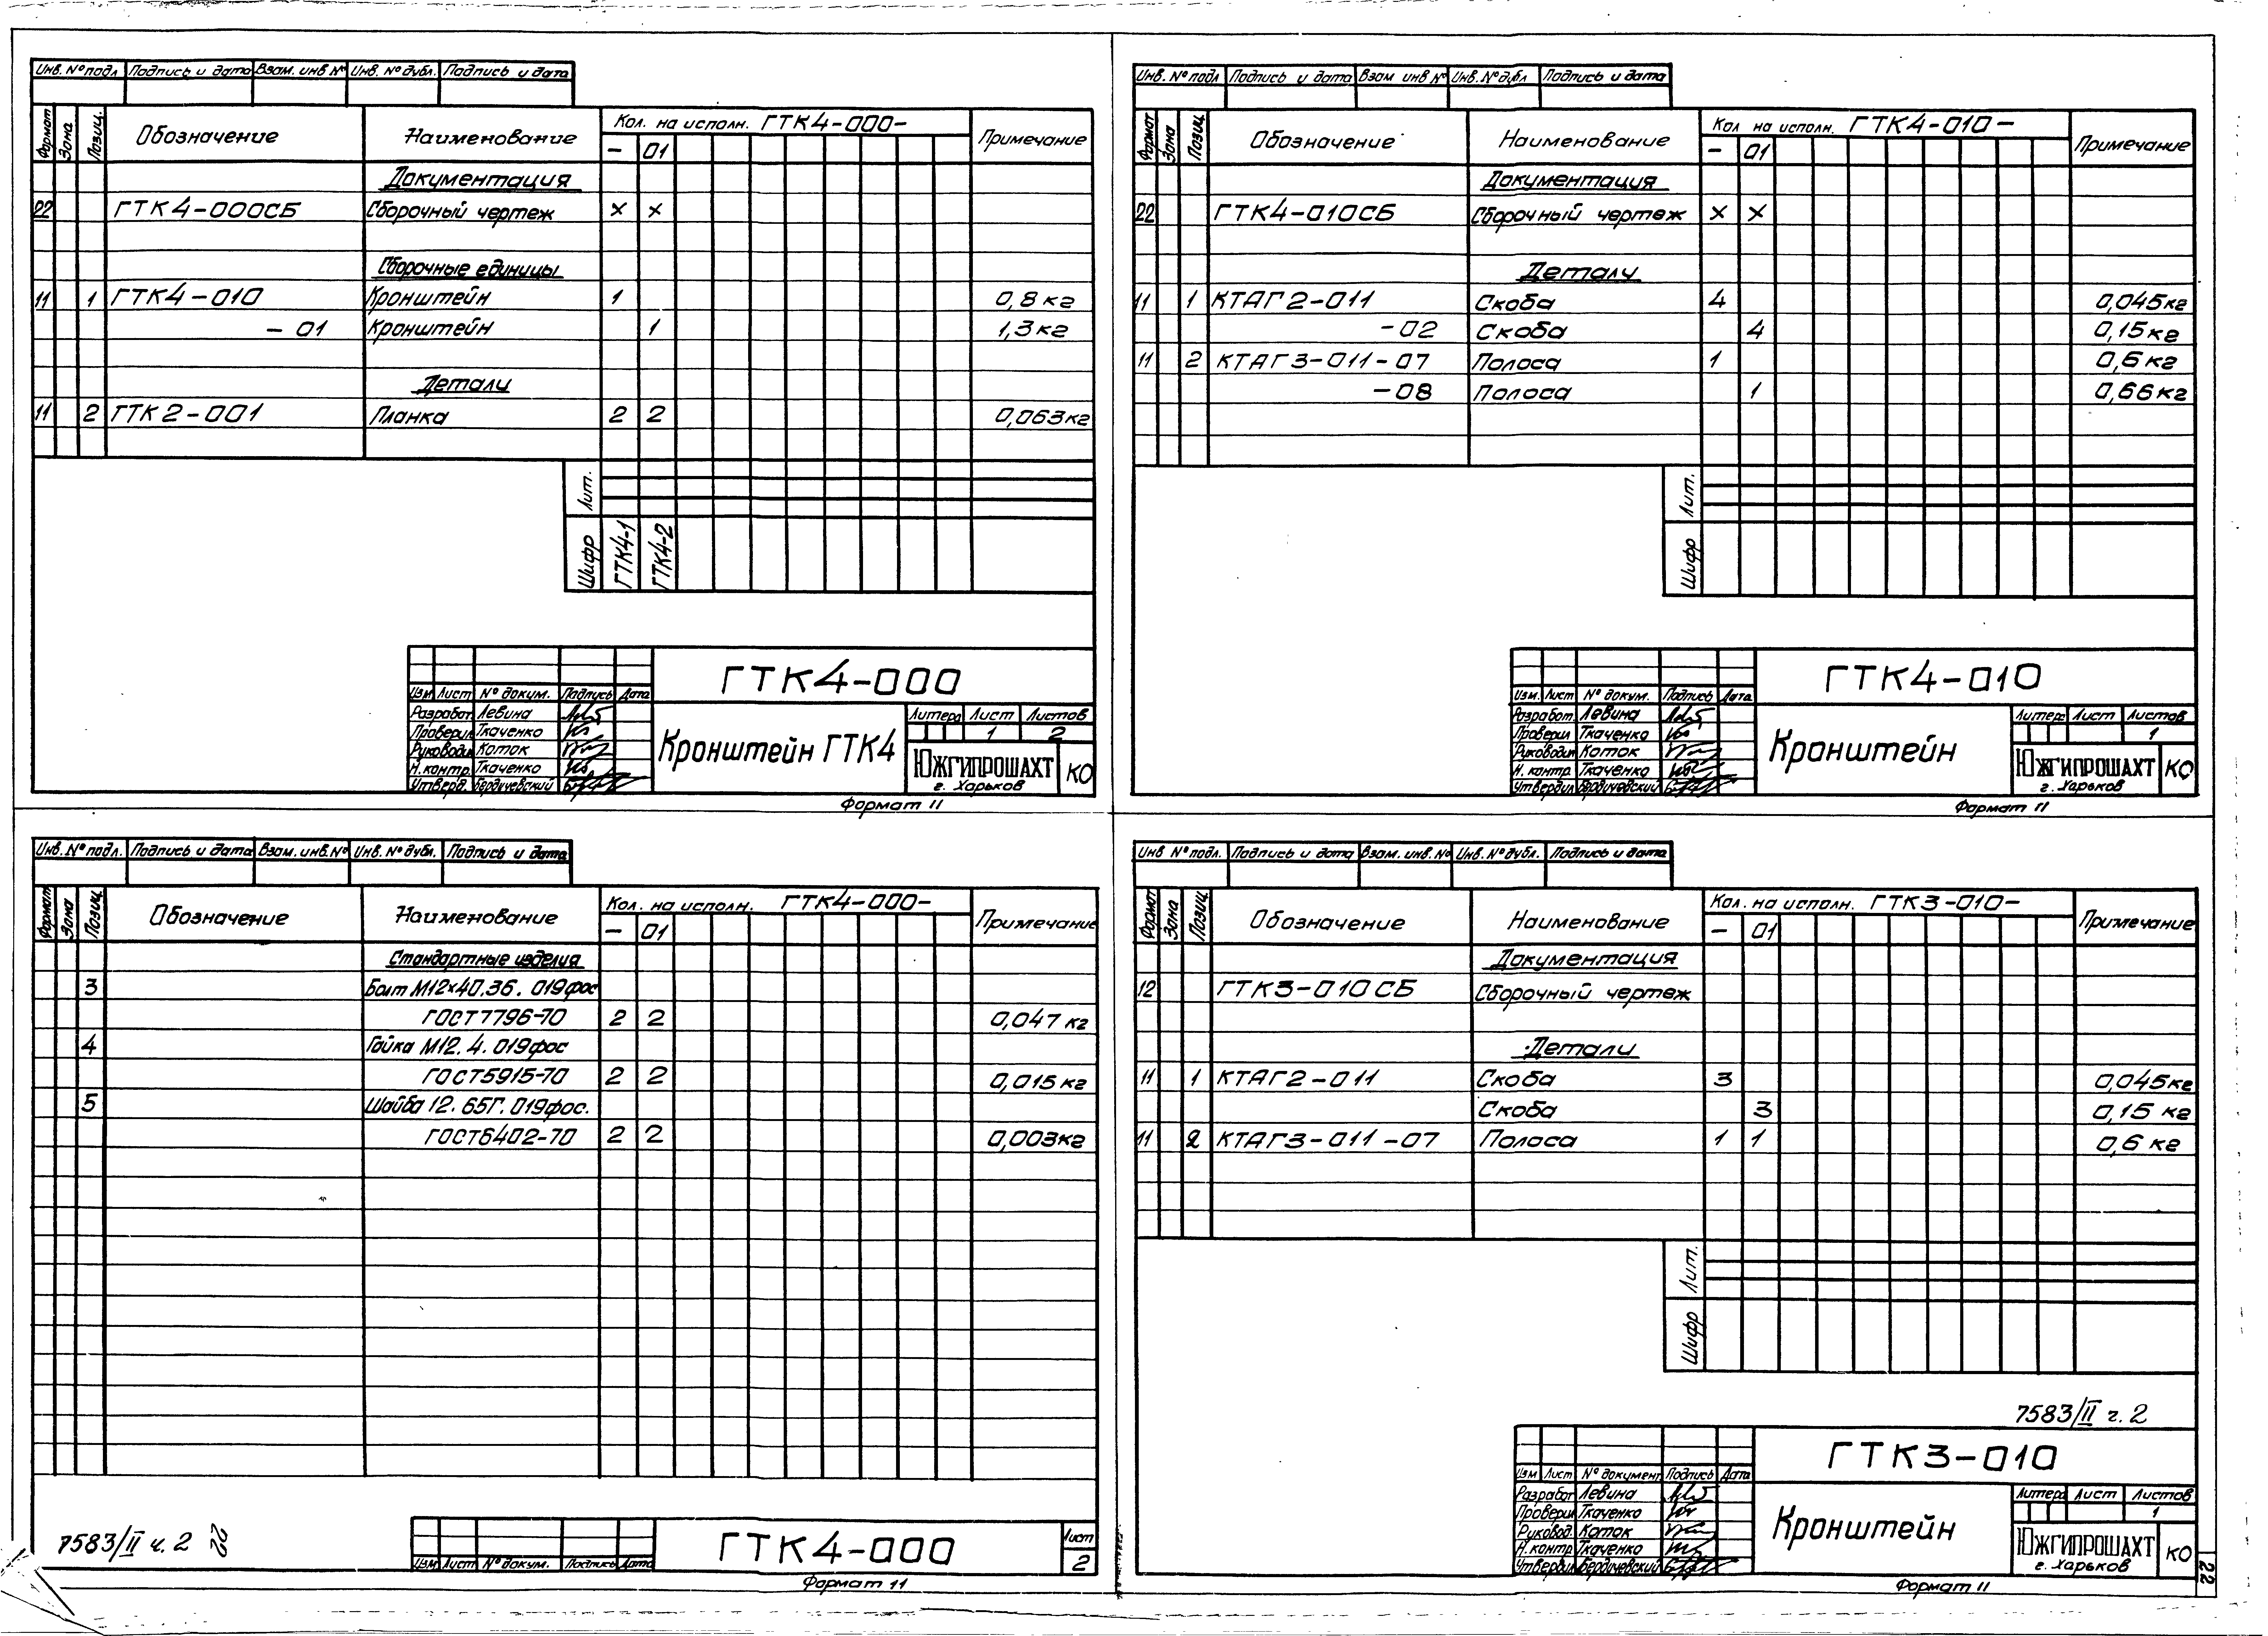 Инв. № подл Подпись и дата Взам. инв № Инв. № дубл. Подпись и дата
Формат Зона Позиц. Обозначение Наименование Кол. на исполн. ГТК4-000- Примечание
- 01
Документация
22 ГТК4-000СБ Сборочный чертеж × ×
Сборочные единицы
11 1 ГТК4-010 Кронштейн 1 0,8кг
-01 Кронштейн 1 1,3кг
Детали
11 2 ГТК2-001 Планка 2 2 0,063кг
Лит.
Шифр ГТК4-1 ГТК4-2
ГТК4-000
Изм Лист № докум. Подпись Дата
Разработ. Левина
Проверил Ткаченко
Руководил Коток
Н. контр. Ткаченко
Утверд. Бердичевский
Кронштейн ГТК4
Литера Лист Листов
1 2
ЮЖГИПРОШАХТ
г. Харьков
КО
Формат 11
Инв. № подл Подпись и дата Взам инв № Инв. № дубл Подпись и дата
Формат Зона Позиц Обозначение Наименование Кол на исполн. ГТК4-010- Примечание
- 01
Документация
22 ГТК4-010СБ Сборочный чертеж × ×
Детали
11 1 КТАГ2-011 Скоба 4 0,045кг
-02 Скоба 4 0,15кг
11 2 КТАГ3-011-07 Полоса 1 0,6кг
-08 Полоса 1 0,66кг
Лит.
Шифр
ГТК4-010
Изм. Лист № докум. Подпись Дата
Разработ. Левина
Проверил Ткаченко
Руководил Коток
Н. контр Ткаченко
Утвердил Бердичевский
Кронштейн
Литера Лист Листов
1
ЮЖГИПРОШАХТ
г. Харьков
КО
Формат 11
Инв. № подл. Подпись и дата Взам. инв. № Инв. № дубл. Подпись и дата
Формат Зона Позиц. Обозначение Наименование Кол. на исполн. ГТК4-000- Примечание
- 01
Стандартные изделия
3 Болт М12×40.36.019фос
ГОСТ7796-70 2 2 0,047 кг
4 Гайка М12.4.019фос
ГОСТ5915-70 2 2 0,015 кг
5 Шайба 12.65Г.019фос.
ГОСТ6402-70 2 2 0,003кг
7583/II ч. 2 22
Изм Лист № докум. Подпись Дата
ГТК4-000
Лист
2
Формат 11
Инв № подл. Подпись и дата Взам. инв. № Инв. № дубл. Подпись и дата
Формат Зона Позиц Обозначение Наименование Кол. на исполн. ГТК3-010- Примечание
- 01
Документация
12 ГТК3-010СБ Сборочный чертеж
Детали
11 1 КТАГ2-011 Скоба 3 0,045кг
Скоба 3 0,15 кг
11 2 КТАГ3-011-07 Полоса 1 1 0,6 кг
Лит.
Шифр
7583/II ч. 2
ГТК3-010
Изм Лист № документ Подпись Дата
Разработ Левина
Проверил Ткаченко
Руковод. Коток
Н.контр Ткаченко
Утвердил Бердичевский
Кронштейн
Литера Лист Листов
1
ЮЖГИПРОШАХТ
г. Харьков
КО
Формат 11
22